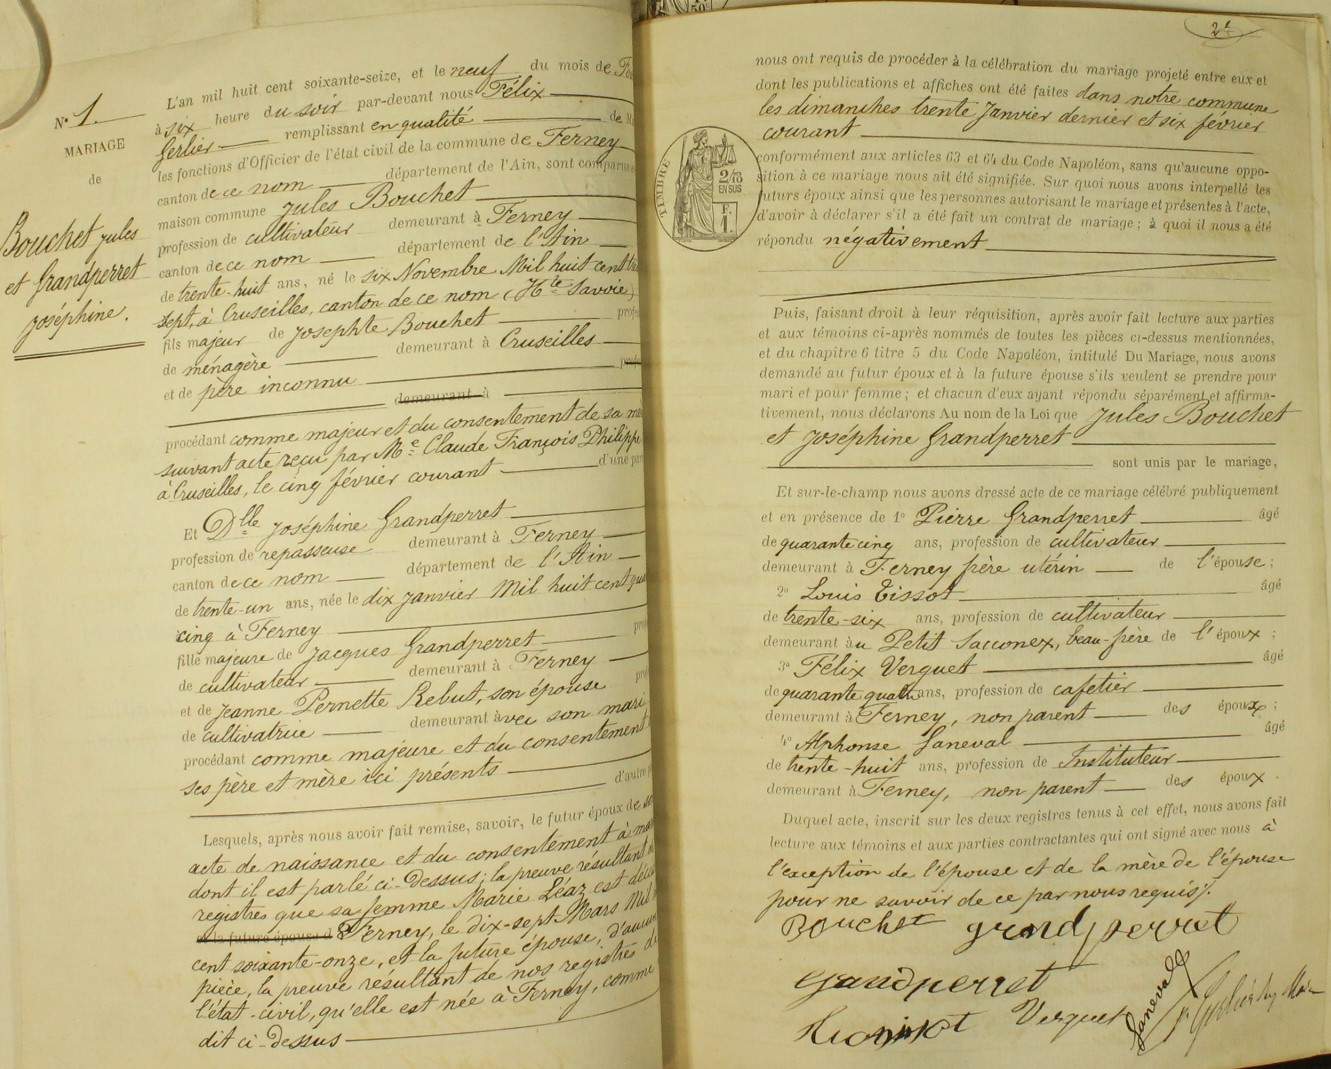 N° 1.
MARIAGE
de
Bouchet Jules
et Grandperret
Joséphine.
L'an mil huit cent soixante-seize, et le neuf du mois de
à six heure du soir par-devant nous Félix
Gerlier remplissant en qualité de
les fonctions d'Officier de l'état civil de la commune de Ferney
canton de ce nom département de l'Ain, sont
maison commune Jules Bouchet
profession de cultivateur demeurant à Ferney
canton de ce nom département de l'Ain
de trente-huit ans, né le six Novembre Mil huit cent
sept, à Cruseilles, canton de ce nom (Hte Savoie)
fils majeur de Josephte Bouchet
de ménagère demeurant à Cruseilles
et de père inconnu
demeurant à
procédant comme majeur et du consentement de sa
suivant acte reçu par Me Claude François Philippe
à Cruseilles, le cinq février courant d'une
Et Dlle Joséphine Grandperret
profession de repasseuse demeurant à Ferney
canton de ce nom département de l'Ain
de trente-un ans, née le dix Janvier Mil huit cent
cinq à Ferney
fille majeure de Jacques Grandperret
de cultivateur demeurant à Ferney
et de Jeanne Pernette Rebut, son épouse
de cultivatrice demeurant avec son mari
procédant comme majeure et du consentement
ses père et mère ici présents d'autre
Lesquels, après nous avoir fait remise, savoir, le futur époux de
acte de naissance et du consentement à
dont il est parlé ci-dessus; la preuve résultant
registres que sa femme Marie Léaz est
et la future épouse d à Ferney, le dix-sept Mars Mil
cent soixante-onze, et la future épouse, d'aucune
pièce, la preuve résultant de nos registres de
l'état-civil, qu'elle est née à Ferney, comme
dit ci-dessus
2f
TIMBRE
2/10
EN SUS
F.
1.
nous ont requis de procéder à la célébration du mariage projeté entre eux et
dont les publications et affiches ont été faites dans notre commune
les dimanches trente Janvier dernier et six février
courant
conformément aux articles 63 et 64 du Code Napoléon, sans qu'aucune oppo-
sition à ce mariage nous ait été signifiée. Sur quoi nous avons interpellé les
futurs époux ainsi que les personnes autorisant le mariage et présentes à l'acte,
d'avoir à déclarer s'il a été fait un contrat de mariage; à quoi il nous a été
répondu négativement
Puis, faisant droit à leur réquisition, après avoir fait lecture aux parties
et aux témoins ci-après nommés de toutes les pièces ci-dessus mentionnées,
et du chapitre 6 titre 5 du Code Napoléon, intitulé Du Mariage, nous avons
demandé au futur époux et à la future épouse s'ils veulent se prendre pour
mari et pour femme; et chacun d'eux ayant répondu séparément et affirma-
tivement, nous déclarons Au nom de la Loi que Jules Bouchet
et Joséphine Grandperret
sont unis par le mariage,
Et sur-le-champ nous avons dressé acte de ce mariage célébré publiquement
et en présence de 1° Pierre Grandperret âgé
de quarante cinq ans, profession de cultivateur
demeurant à Ferney frère utérin de l'épouse;
2° Louis Tissot âgé
de trente-six ans, profession de cultivateur
demeurant au Petit Sacconex, beau-frère de l'époux;
3° Félix Verguet âgé
de quarante quatre ans, profession de cafetier
demeurant à Ferney, non parent des époux;
4° Alphonse Laneval âgé
de trente-huit ans, profession de Instituteur
demeurant à Ferney, non parent des époux.
Duquel acte, inscrit sur les deux registres tenus à cet effet, nous avons fait
lecture aux témoins et aux parties contractantes qui ont signé avec nous à
l'exception de l'épouse et de la mère de l'épouse
pour ne savoir de ce par nous requis.
Bouchet grandperret
grandperret
Verguet
Laneval